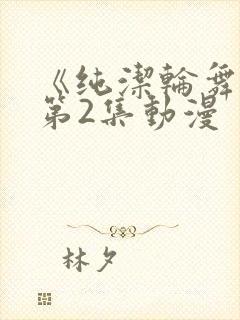 《纯潔輪舞
第2集動漫
林夕